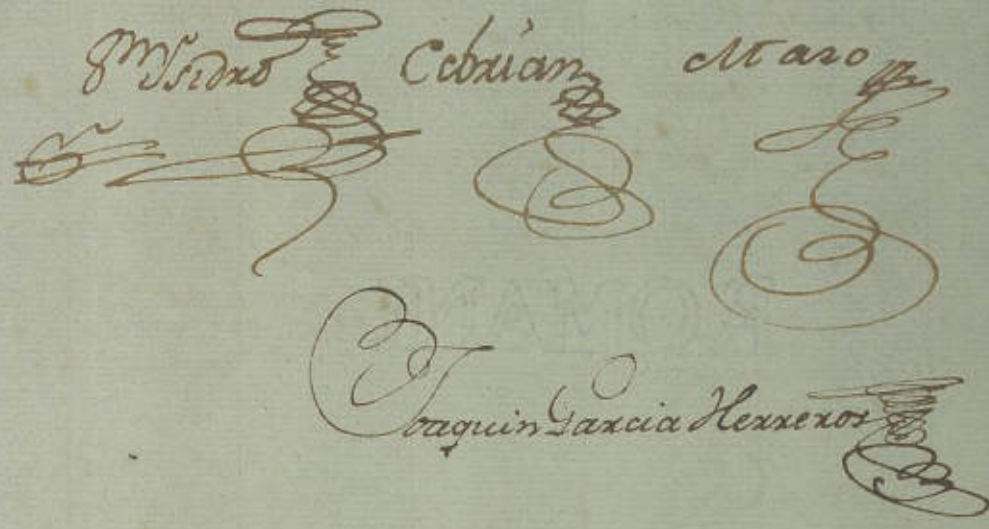 Sr Isidro Cebrian Maro
Joaquin Garcia Herreros